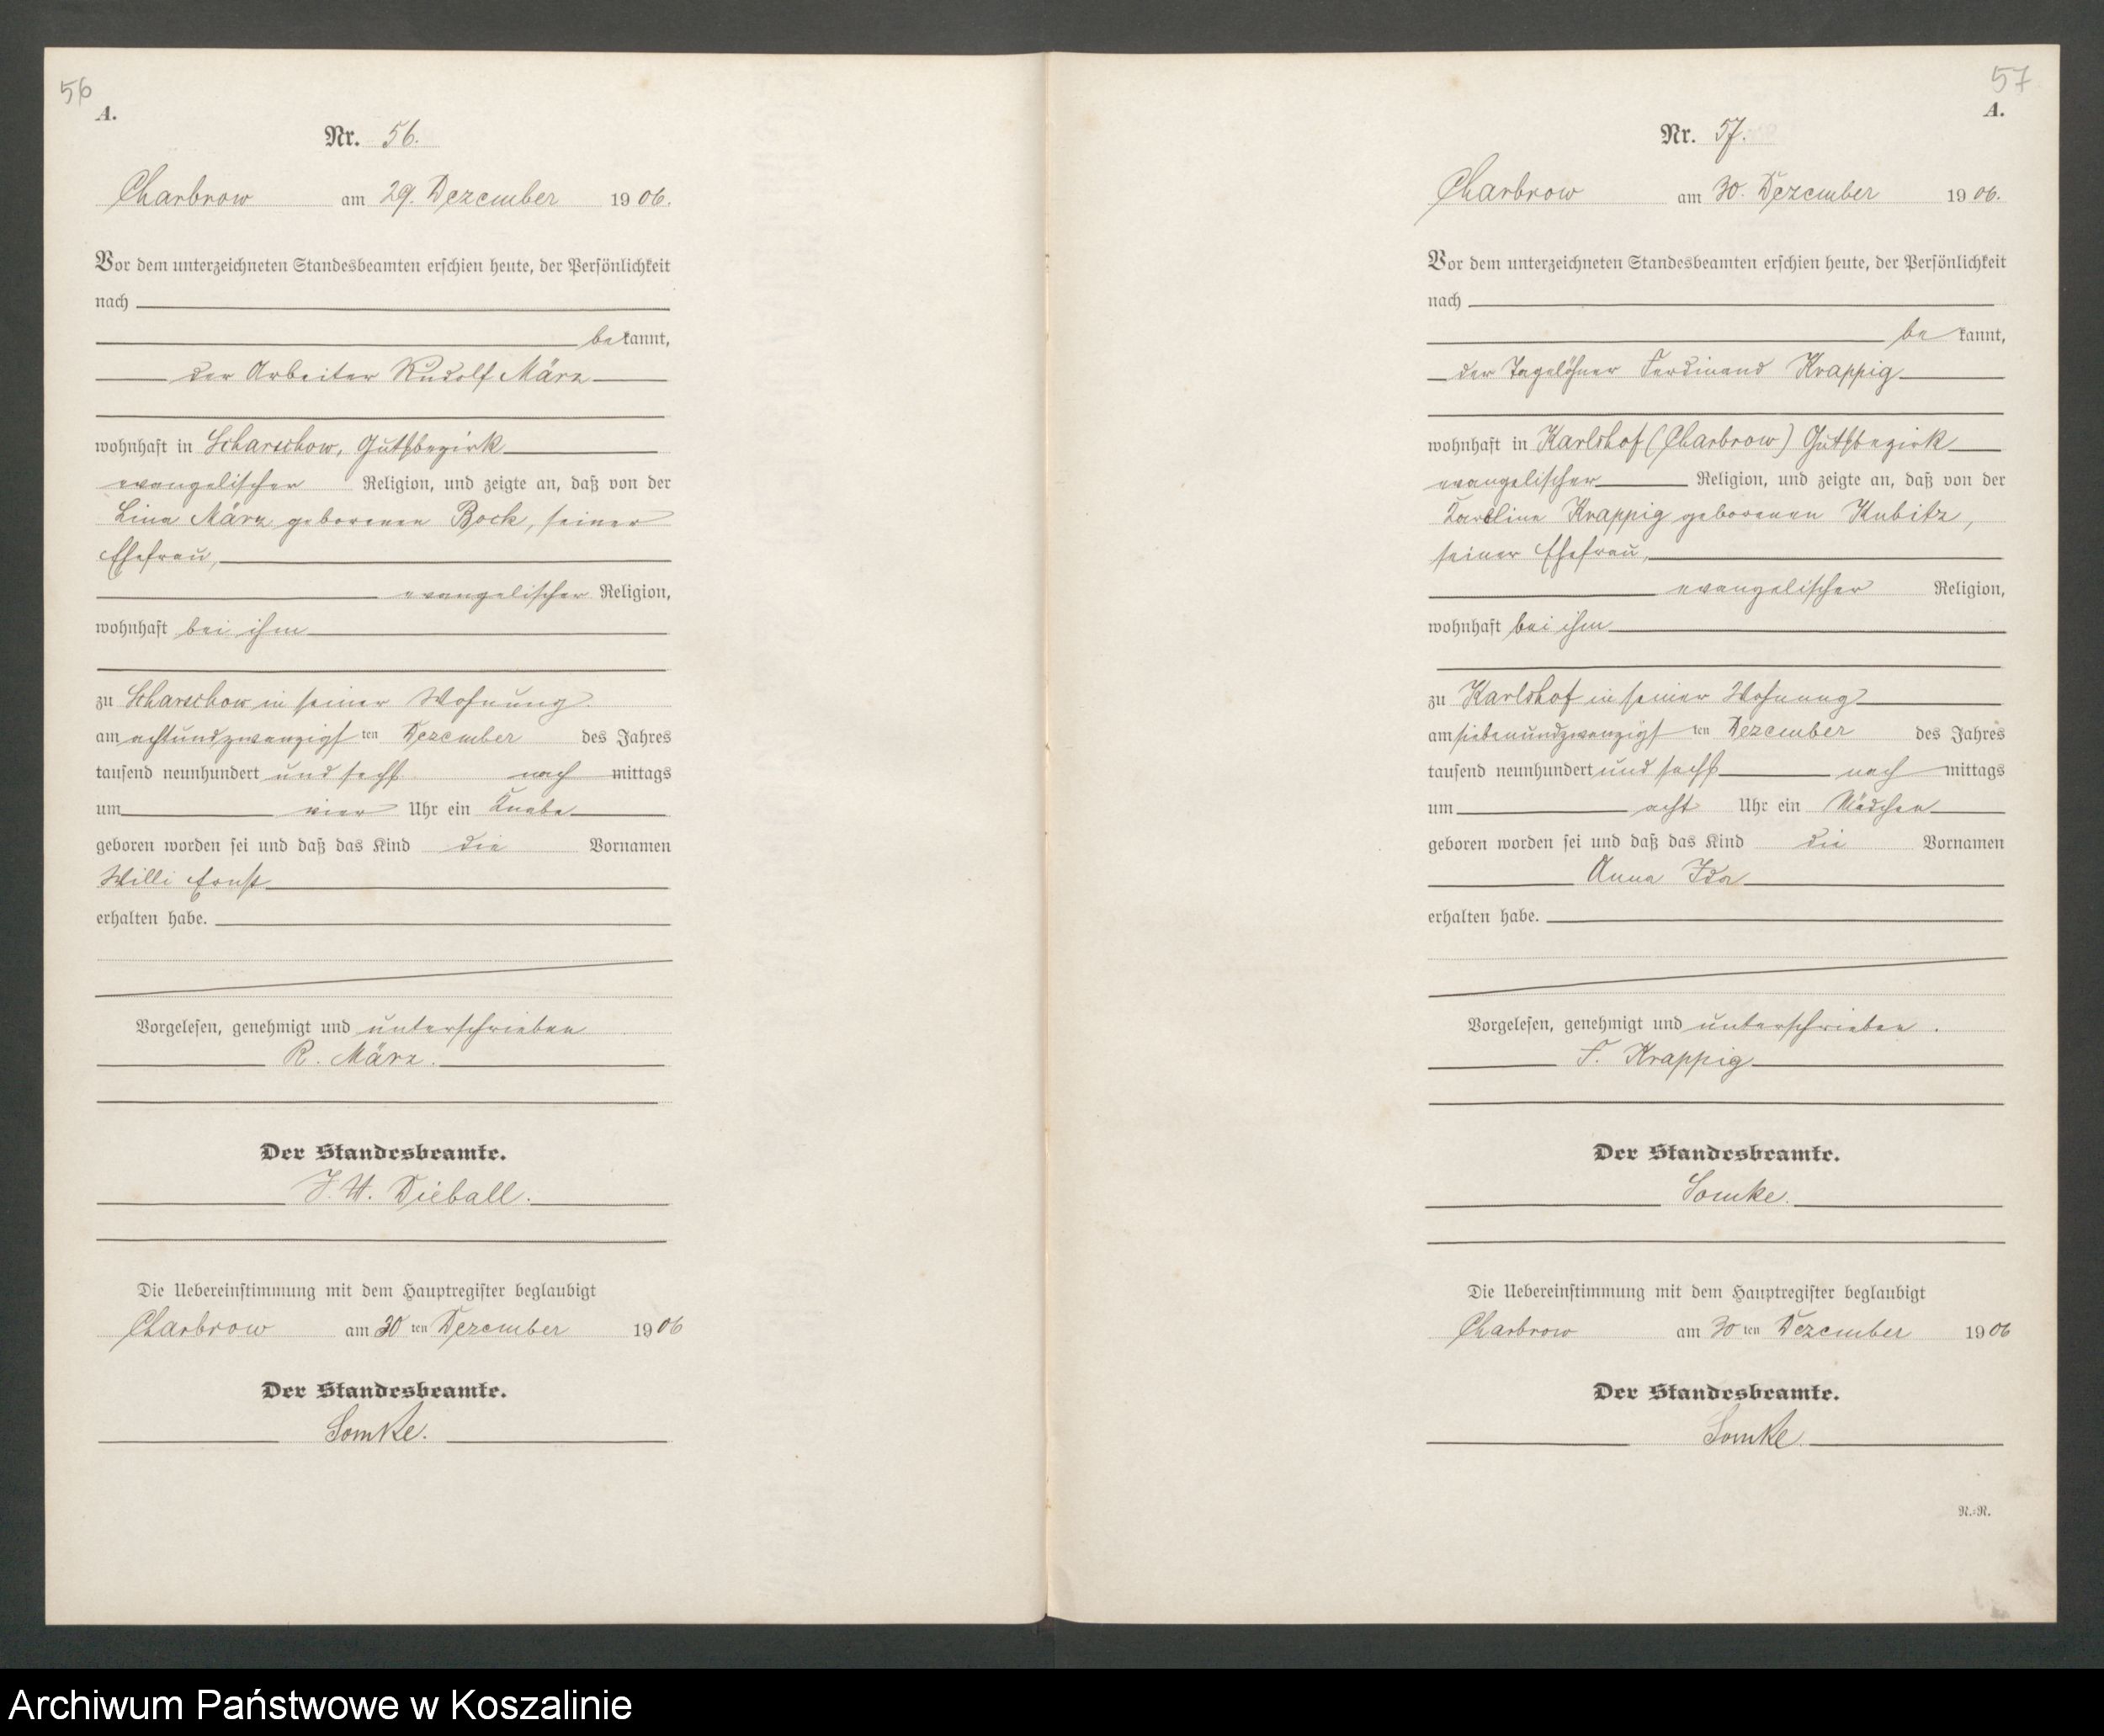 56
A.
Nr. 56.
Charbrow am 29. Dezember 1906.
Vor dem unterzeichneten Standesbeamten erschien heute, der Persönlichkeit
nach
bekannt,
der Arbeiter Rudolf März
wohnhaft in Scharschow, Gutsbezirk
evangelischer Religion, und zeigte an, daß von der
Lina März geborenen Bock, seiner
Ehefrau,
evangelischer Religion,
wohnhaft bei ihm
zu Scharschow in seiner Wohnung.
am achtundzwanzigsten Dezember des Jahres
tausend neunhundert und sechs nachmittags
um vier Uhr ein Knabe
geboren worden sei und daß das Kind die Vornamen
Willi Ernst
erhalten habe.
Vorgelesen, genehmigt und unterschrieben
R. März.
Der Standesbeamte.
J. W. Dieball.
Die Uebereinstimmung mit dem Hauptregister beglaubigt
Charbrow am 30ten Dezember 1906
Der Standesbeamte.
Somke.
57
A.
Nr. 57.
Charbrow am 30. Dezember 1906.
Vor dem unterzeichneten Standesbeamten erschien heute, der Persönlichkeit
nach
bekannt,
der Tagelöhner Ferdinand Krappig
wohnhaft in Karlshof (Charbrow) Gutsbezirk
evangelischer Religion, und zeigte an, daß von der
Karoline Krappig geborenen Kubitz,
seiner Ehefrau,
evangelischer Religion,
wohnhaft bei ihm
zu Karlshof in seiner Wohnung
am siebenundzwanzigsten Dezember des Jahres
tausend neunhundert und sechs nachmittags
um acht Uhr ein Mädchen
geboren worden sei und daß das Kind die Vornamen
Anna Ida
erhalten habe.
Vorgelesen, genehmigt und unterschrieben.
F. Krappig
Der Standesbeamte.
Somke.
Die Uebereinstimmung mit dem Hauptregister beglaubigt
Charbrow am 30ten Dezember 1906
Der Standesbeamte.
Somke.
N.:N.
Archiwum Państwowe w Koszalinie